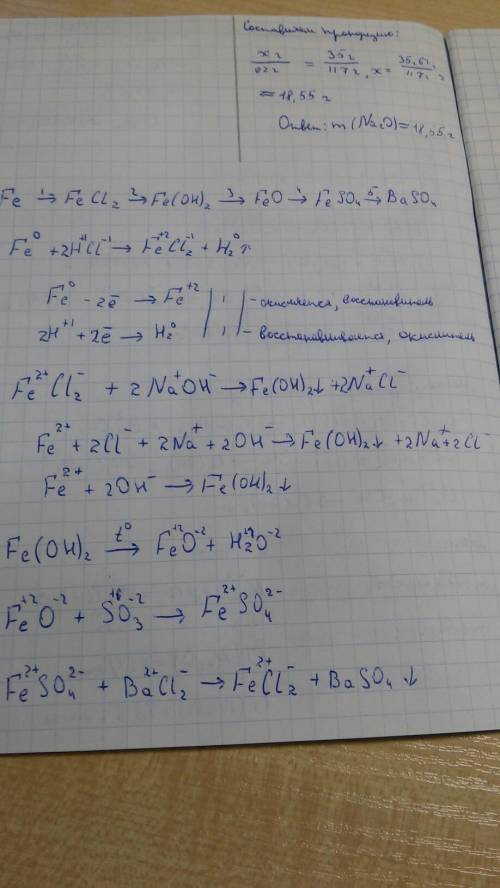 Составим пропорцию:
x г / 62 г = 35 г / 117 г, x = 35·62 / 117
= 18,55 г
Ответ: m(Na₂O) = 18,55 г
Fe ¹→ FeCl₂ ²→ Fe(OH)₂ ³→ FeO ⁴→ FeSO₄ ⁵→ BaSO₄
Fe⁰ + 2H⁺¹Cl⁻¹ → Fe⁺²Cl₂⁻¹ + H₂⁰↑
Fe⁰ - 2ē → Fe⁺² | 1 | - окисляется, восстановитель
2H⁺¹ + 2ē → H₂⁰ | 1 | - восстанавливается, окислитель
Fe²⁺Cl₂⁻ + 2Na⁺OH⁻ → Fe(OH)₂↓ + 2Na⁺Cl⁻
Fe²⁺ + 2Cl⁻ + 2Na⁺ + 2OH⁻ → Fe(OH)₂↓ + 2Na⁺ + 2Cl⁻
Fe²⁺ + 2OH⁻ → Fe(OH)₂↓
Fe(OH)₂ t⁰→ Fe⁺²O⁻² + H₂⁺¹O⁻²
Fe⁺²O⁻² + S⁺⁶O₃⁻² → Fe²⁺SO₄²⁻
Fe²⁺SO₄²⁻ + Ba²⁺Cl₂⁻ → Fe²⁺Cl₂⁻ + BaSO₄↓